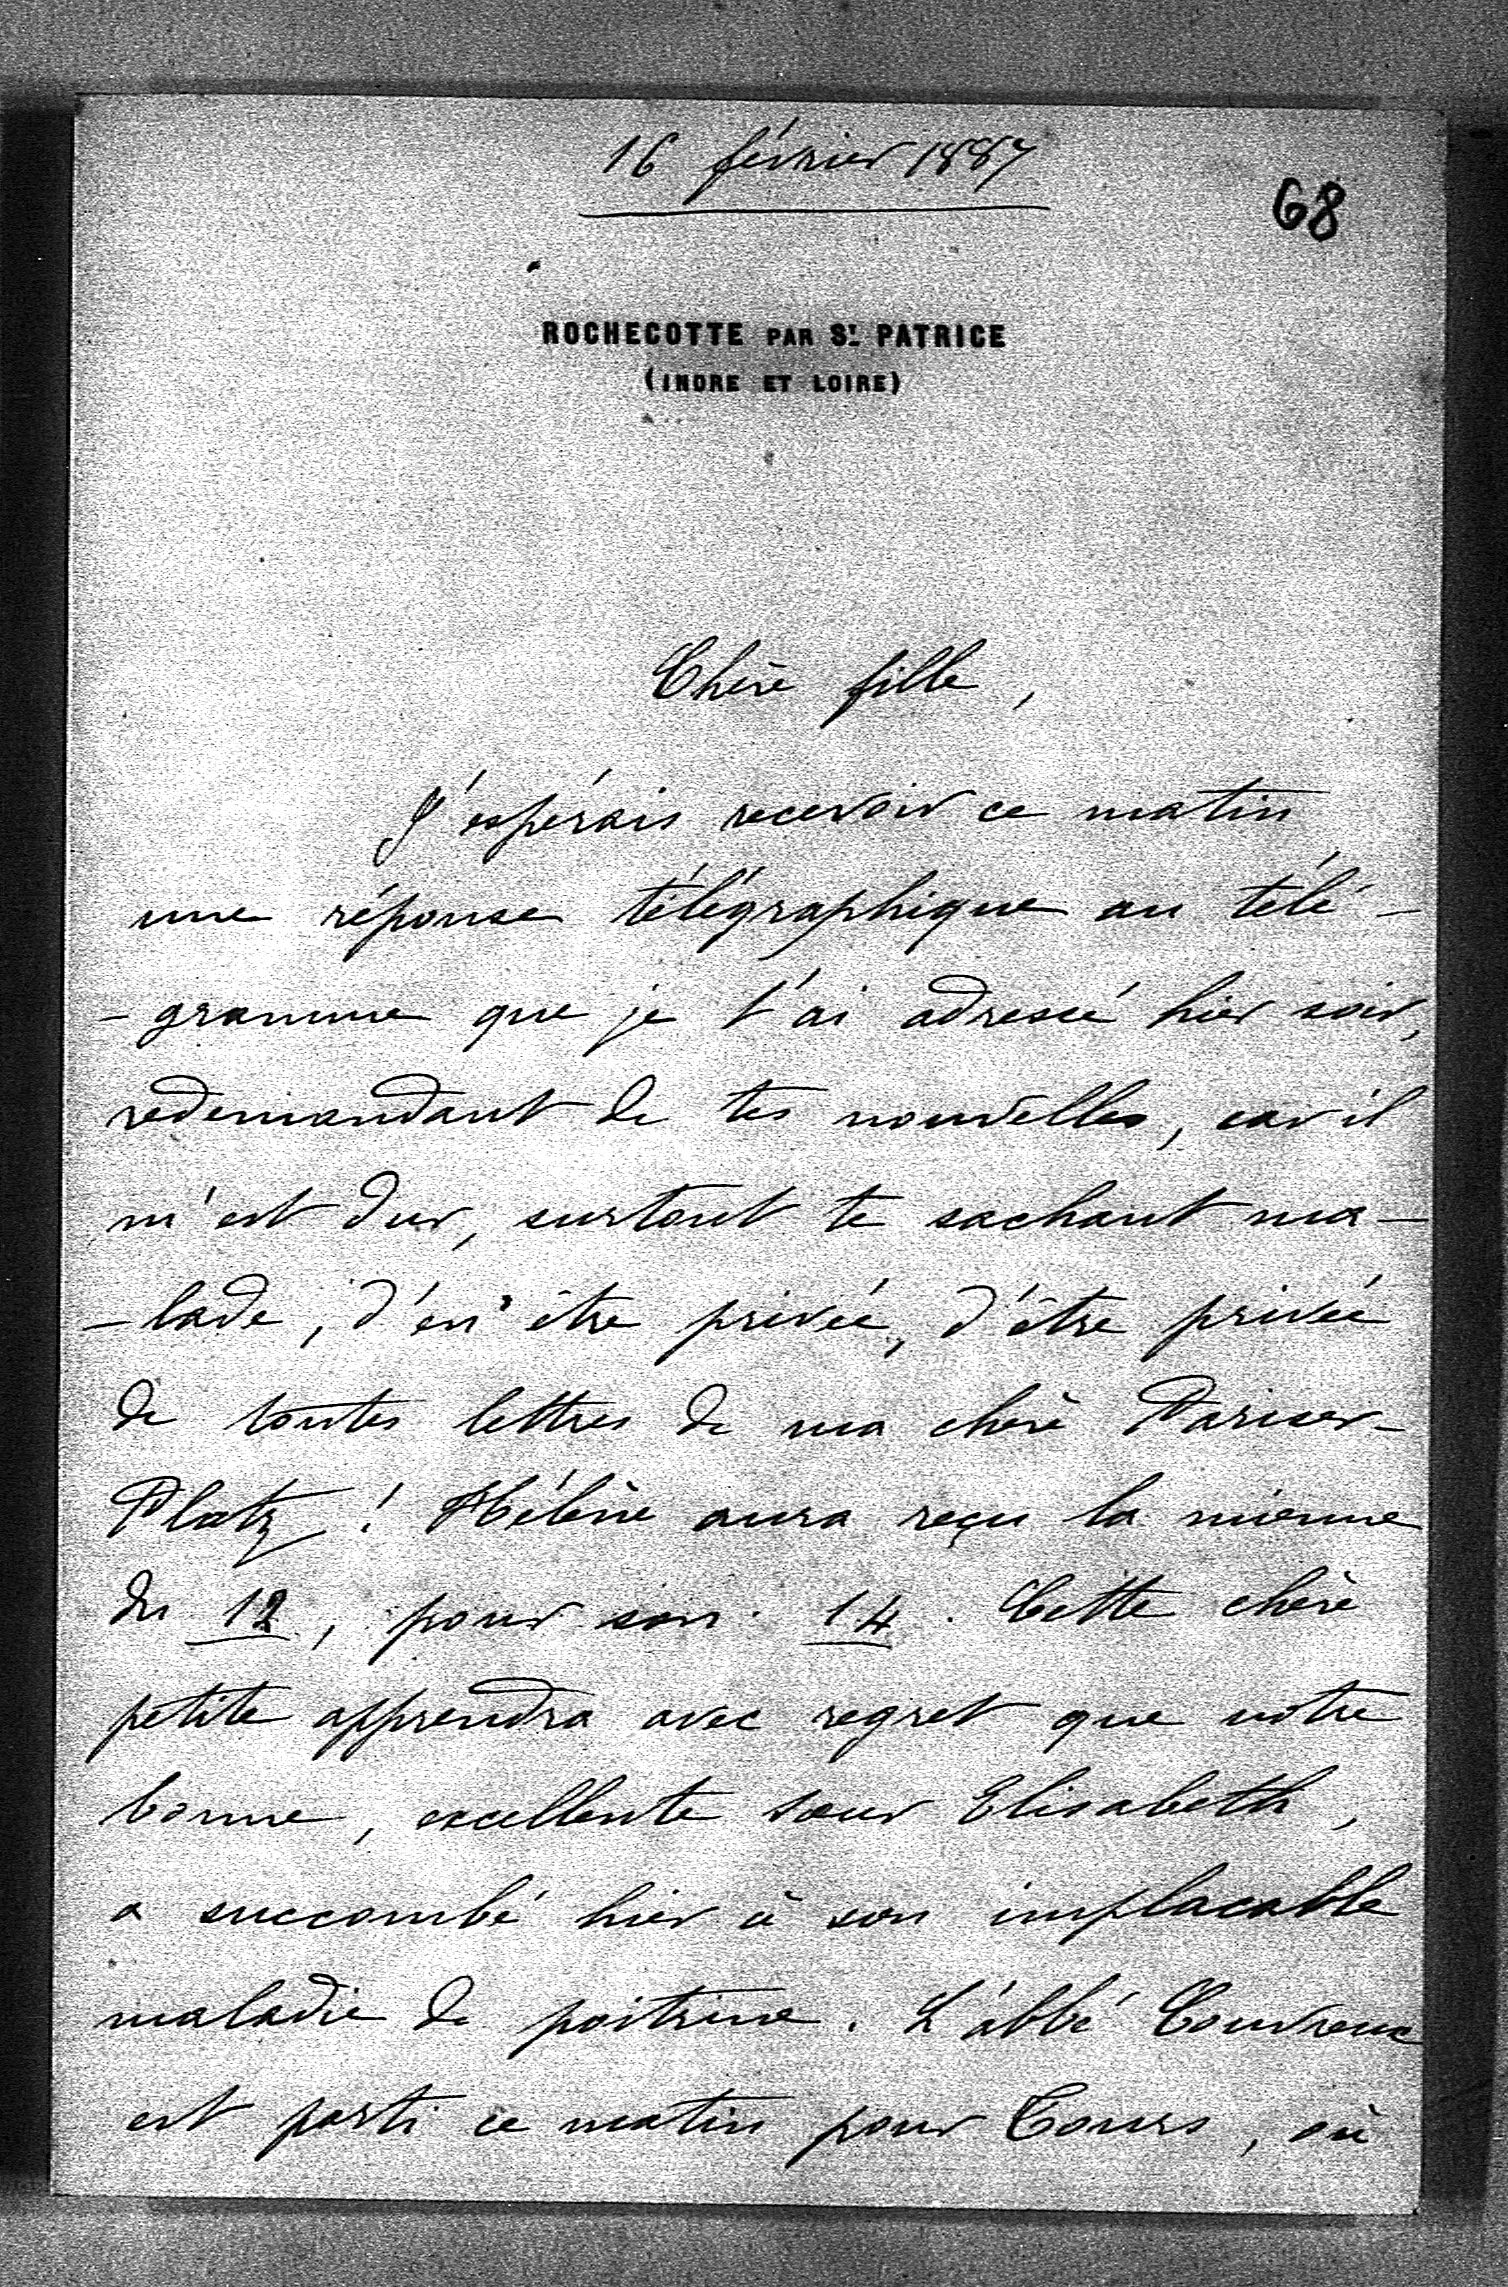 16 février 1887
68
ROCHECOTTE PAR ST PATRICE
(INDRE ET LOIRE)
Chère fille,
J'espérais recevoir ce matin
une réponse télégraphique au télé-
-gramme que je t'ai adressé hier soir,
redemandant de tes nouvelles, car il
m'est dur, surtout te sachant ma-
-lade, d'en être privée, d'être privée
de toutes lettres de ma chère Pariser-
Platz! Hélène aura reçu la mienne
du 12, pour son 14. Cette chère
petite apprendra avec regret que notre
bonne, excellente sœur Elisabeth,
a succombé hier à son implacable
maladie de poitrine. L'abbé Couvreux
est parti ce matin pour Tours, où